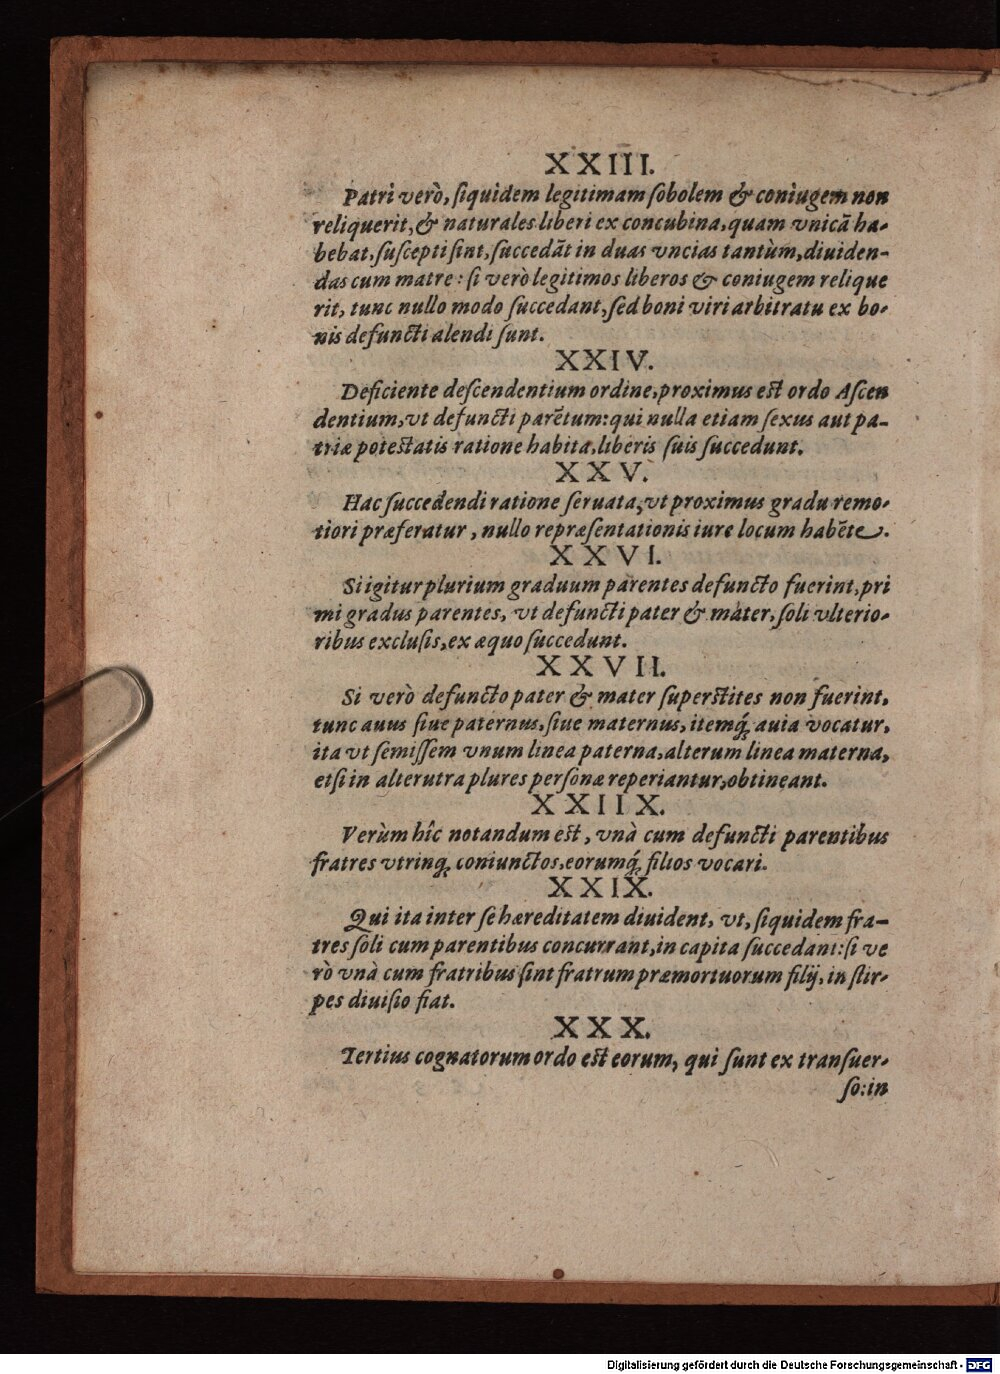 XXIII.
Patri verò, ſiquidem legitimam ſobolem & coniugem non
reliquerit, & naturales liberi ex concubina, quam vnicā ha-
bebat, ſuſcepti ſint, ſuccedāt in duas vncias tantùm, diuiden-
das cum matre: ſi verò legitimos liberos & coniugem relique
rit, tunc nullo modo ſuccedant, ſed boni viri arbitratu ex bo-
nis defuncti alendi ſunt.
XXIV.
Deficiente deſcendentium ordine, proximus est ordo Aſcen
dentium, vt defuncti parētum: qui nulla etiam ſexus aut pa-
triæ potestatis ratione habita, liberis ſuis ſuccedunt.
XXV.
Hac ſuccedendi ratione ſeruata, vt proximus gradu remo-
tiori præferatur, nullo repræſentationis iure locum habēte.
XXVI.
Si igitur plurium graduum parentes defuncto fuerint, pri
mi gradus parentes, vt defuncti pater & mater, ſoli vlterio-
ribus excluſis, ex æquo ſuccedunt.
XXVII.
Si verò defuncto pater & mater ſuperstites non fuerint,
tunc auus ſiue paternus, ſiue maternus, itemq́; auia vocatur,
ita vt ſemiſſem vnum linea paterna, alterum linea materna,
etſi in alterutra plures perſonæ reperiantur, obtineant.
XXIIX.
Verùm hîc notandum est, vnà cum defuncti parentibus
fratres vtrinq; coniunctos, eorumq́; filios vocari.
XXIX.
Qui ita inter ſe hæreditatem diuident, vt, ſiquidem fra-
tres ſoli cum parentibus concurrant, in capita ſuccedant: ſi ve
rò vnà cum fratribus ſint fratrum præmortuorum filij, in ſtir-
pes diuiſio fiat.
XXX.
Tertius cognatorum ordo est eorum, qui ſunt ex tranſuer-
ſo: in
Digitalisierung gefördert durch die Deutsche Forschungsgemeinschaft - DFG